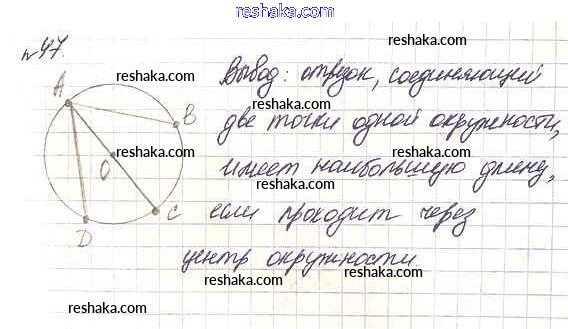 www.reshaka.com
№47.
reshaka.com
Вывод: отрезок, соединяющий
reshaka.com
reshaka.com
A
B
две точки одной окружности,
reshaka.com
reshaka.com
O
имеет наибольшую длину,
reshaka.com
reshaka.com
C
D
если проходит через
центр окружности.
reshaka.com
reshaka.com